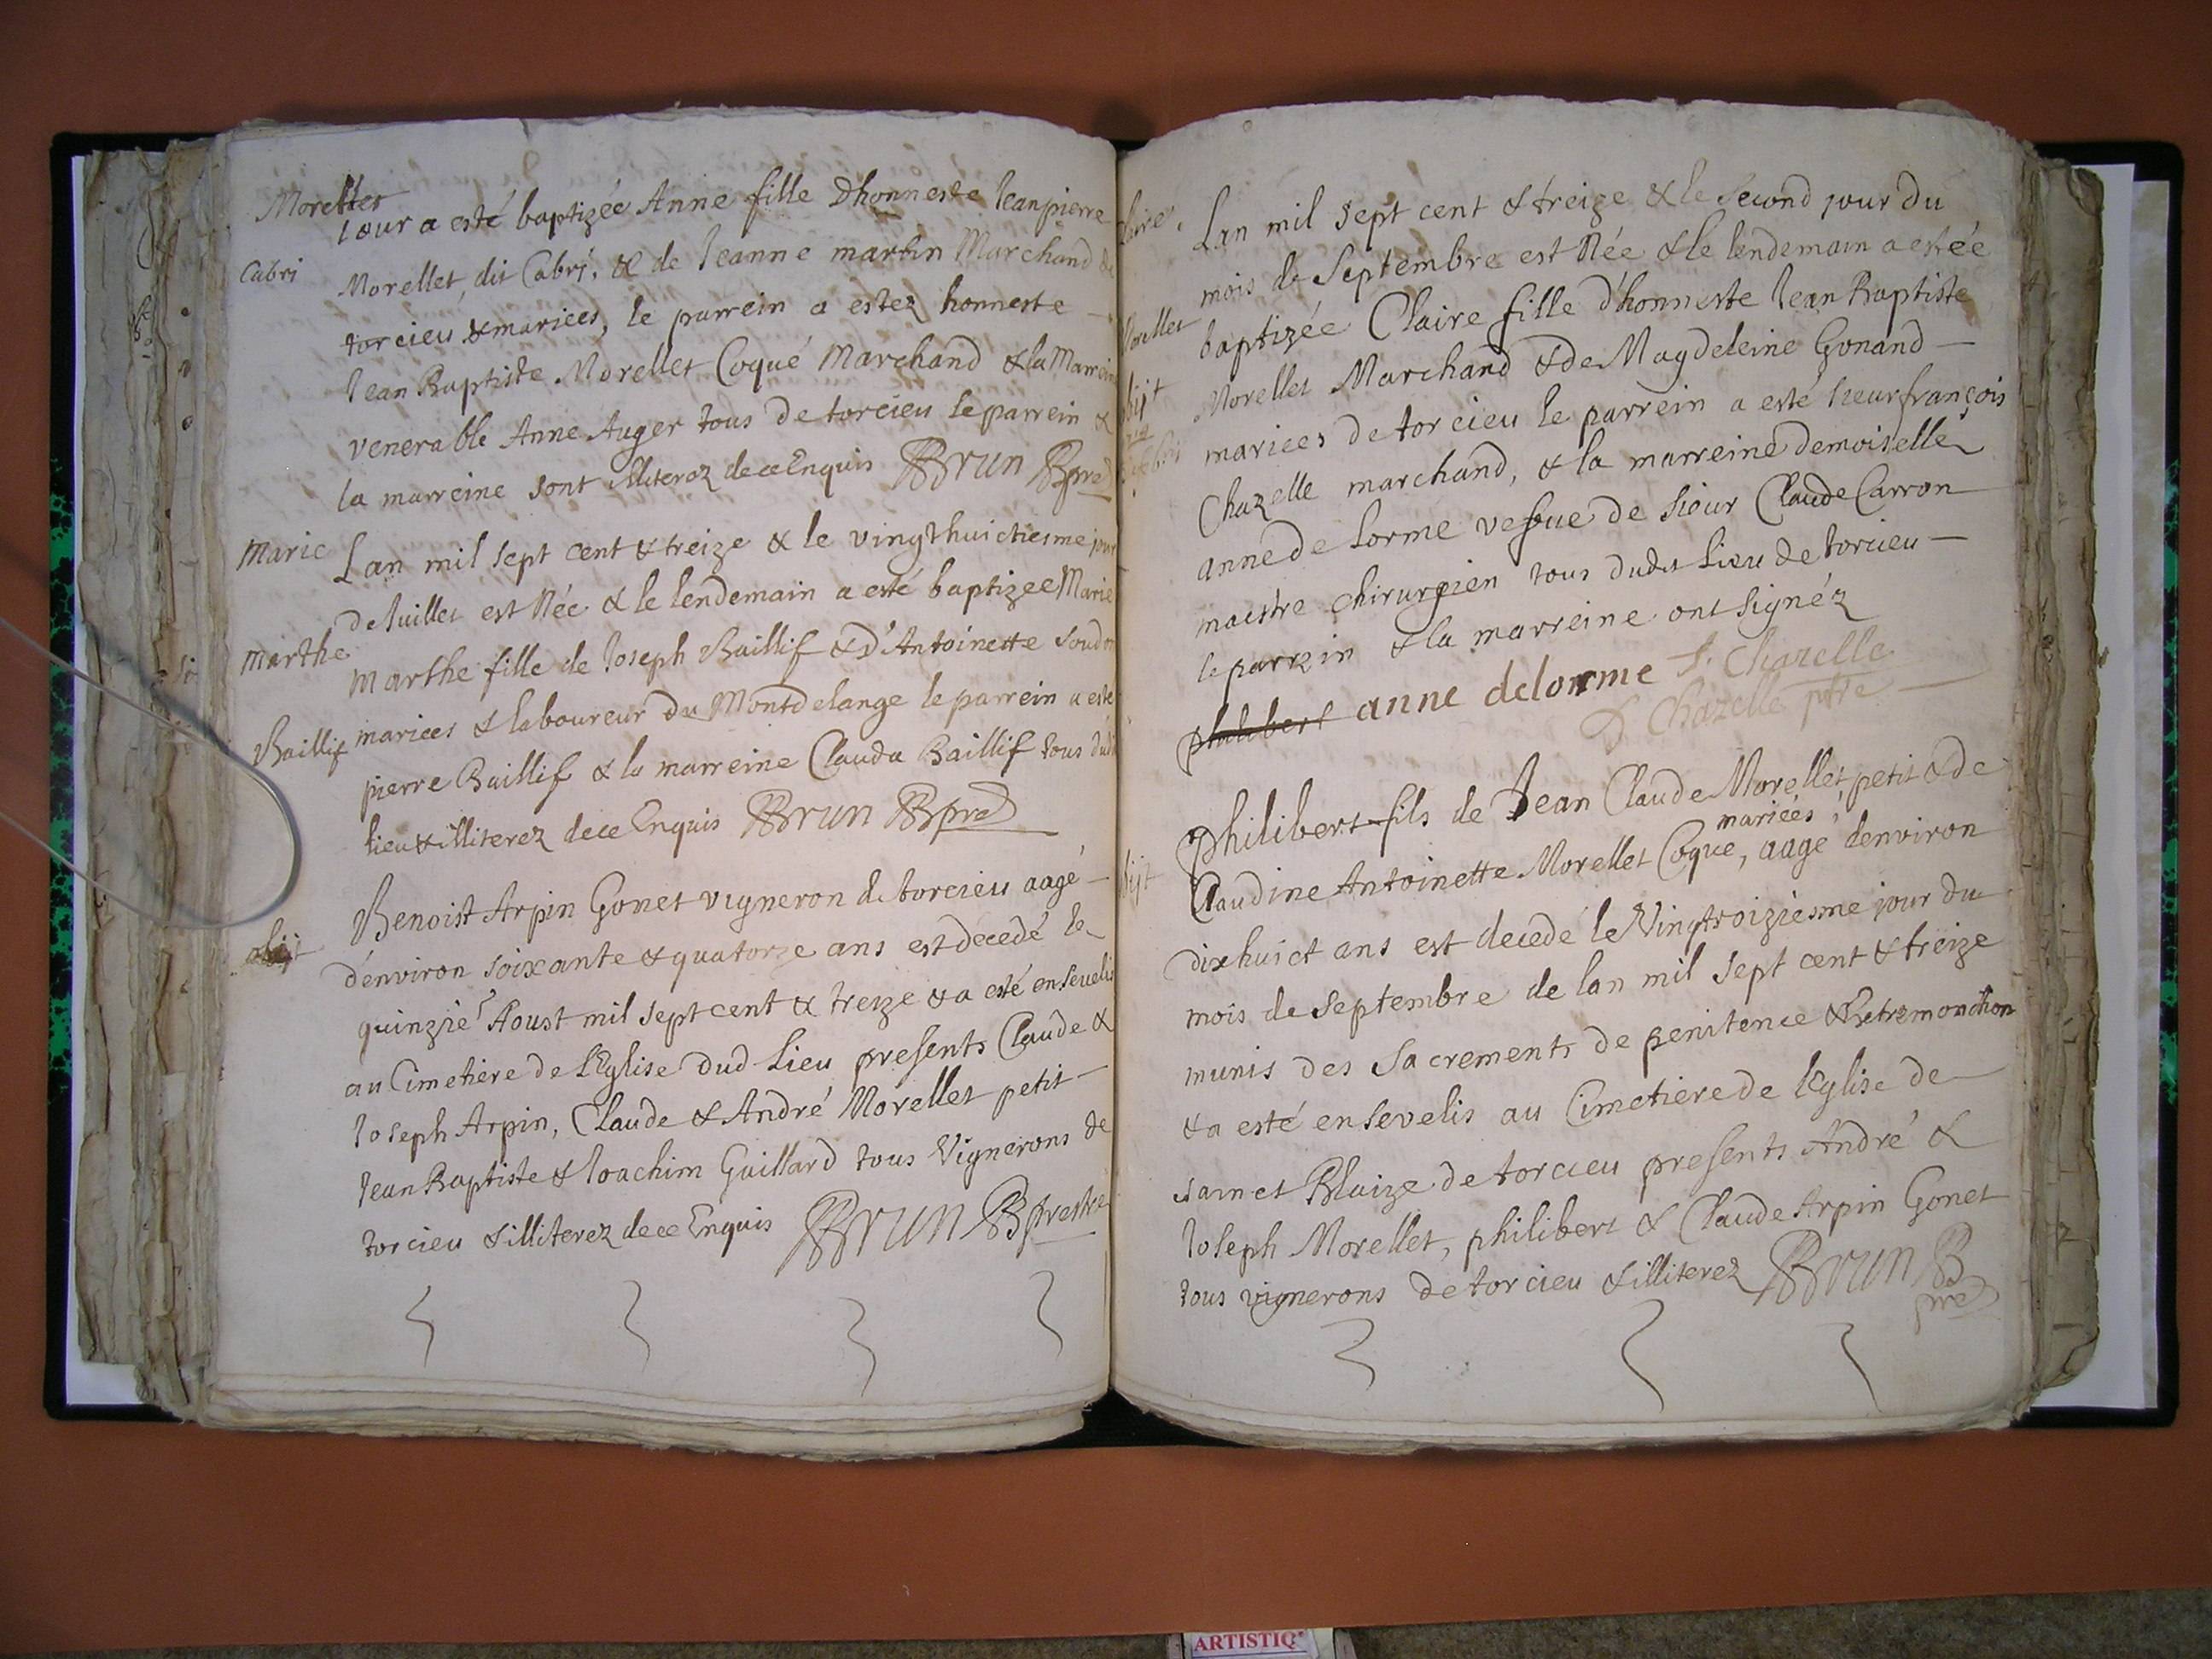 Morellet
Jour a esté baptizée Anne fille Dhonneste Jeanpierre
Cabri
Morellet, dit Cabri, & de Jeanne martin Marchand de
torcieu & mariees, le parrein a estez honneste
Jean Baptiste Morellet Coqué Marchand & la Marreine
venerable Anne Auger tous de torcieu le parrein &
la marreine sont illiterez de ce Enquis BBrun Bpre
Marie
Lan mil sept cent & treize & le vingthuictiesme jour
de Juillet est Née & le lendemain a esté baptizee Marie
Marthe
Marthe fille de Joseph Baillif & D'Antoinette
Baillif
mariees & laboureur du Montdelange le parrein a esté
pierre Baillif & la marreine Clauda Baillif tous dud
lieu & illiterez de ce Enquis BBrun Bpre
Benoist Arpin Gonet vigneron de torcieu aagé
obijt
d'environ soixante & quatorze ans est decedé le
quinzie Aoust mil sept cent & treize & a esté ensevelis
au Cimetiere de L'Eglise dud Lieu presents Claude &
Joseph Arpin, Claude & André Morellet petit
Jean Baptiste & Joachim Guillard tous Vignerons de
torcieu & illiterez de ce Enquis BBrun Bprestre
Claire
Lan mil sept cent & treize & le second jour du
mois de Septembre est Née & le lendemain a estée
Morellet
baptizée Claire fille d'honneste Jean Baptiste
obijt
Morellet Marchand & de Magdeleine Gonand
mariees de torcieu le parrein a esté sieur françois
Chazelle marchand, & la marreine demoiselle
anne de Lorme vefve de sieur Claude Carron
maistre chirurgien tous dudit Lieu de torcieu
le parrein & la marreine ont signéz
philibert anne delorme F. Chazelle
Chazelle ptre
Philibert fils de Jean Claude Morellet petit & de
mariées
obijt
Claudine Antoinette Morellet Coque, aagé denviron
dixhuict ans est decedé le Vingtroiziesme jour du
mois de septembre de lan mil sept cent & treize
munis des Sacrements de penitence & Extremonction
& a esté ensevelis au Cimetiere de l'Eglise de
sainct Blaize de torcieu presents André &
Joseph Morellet, philibert & Claude Arpin Gonet
tous vignerons de torcieu & illiterez BBrun B
pre
ARTISTIQ